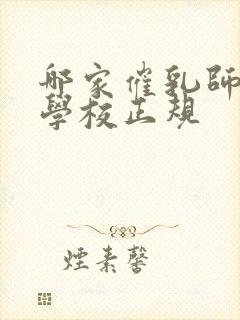 哪家催乳師
學校正規
煙素馨